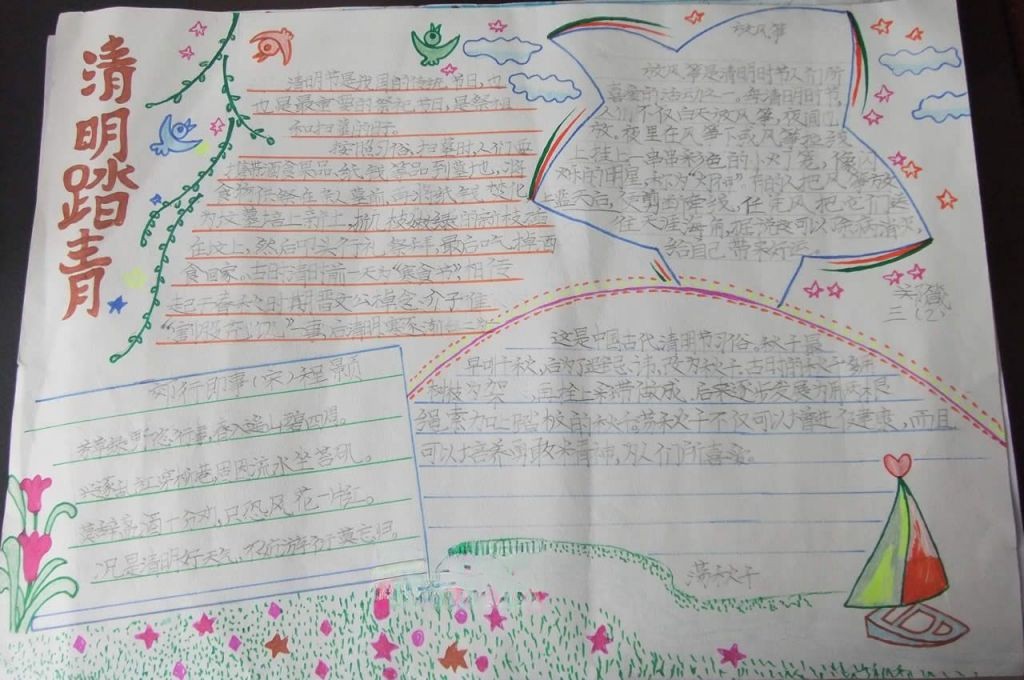 清明踏青
清明节是我国的传统节日,也
也是最重要的祭祀节日,是祭祖
和扫墓的日子。
按照习俗,扫墓时,人们要
携带酒食果品、纸钱等品到墓地,将
食物供祭在亲人墓前,再将纸钱焚化,
为坟墓培上新土,折几枝嫩绿的新枝插
在坟上,然后叩头行礼祭拜,最后吃掉酒
食回家。古时清明前一天为“寒食节”相传
起于春秋时期晋文公悼念介子推
“割股充饥”一事,后清明寒
放风筝
放风筝是清明时节人们所
喜爱的活动之一。每清明时节,
人们不仅白天放风筝,夜间也
放。夜里在风筝下或风筝拉线
上挂上一串串彩色的小灯笼,像闪
烁的明星,
上蓝天后,剪断牵线,任凭风把它们送
往天涯海角,据说这可以除病消灾,
给自己带来好运。
三(2)
郊行即事(宋)程颢
芳草绿野恣行事,春入遥山碧四周。
兴逐乱红穿柳巷,困因流水坐苔矶。
莫辞盏酒十分劝,只恐风花一片红。
况是清明好天气,不妨游衍莫忘归。
这是中国古代清明节习俗。秋千最
早叫千秋,后为了避忌讳,改为秋千。古时的秋千多用
树枝为架,再拴上彩带做成,后来逐步发展为用两根
绳索加上踏板的秋千。荡秋千不仅可以增进健康,而且
可以培养勇敢精神,为人们所喜爱。
荡秋千